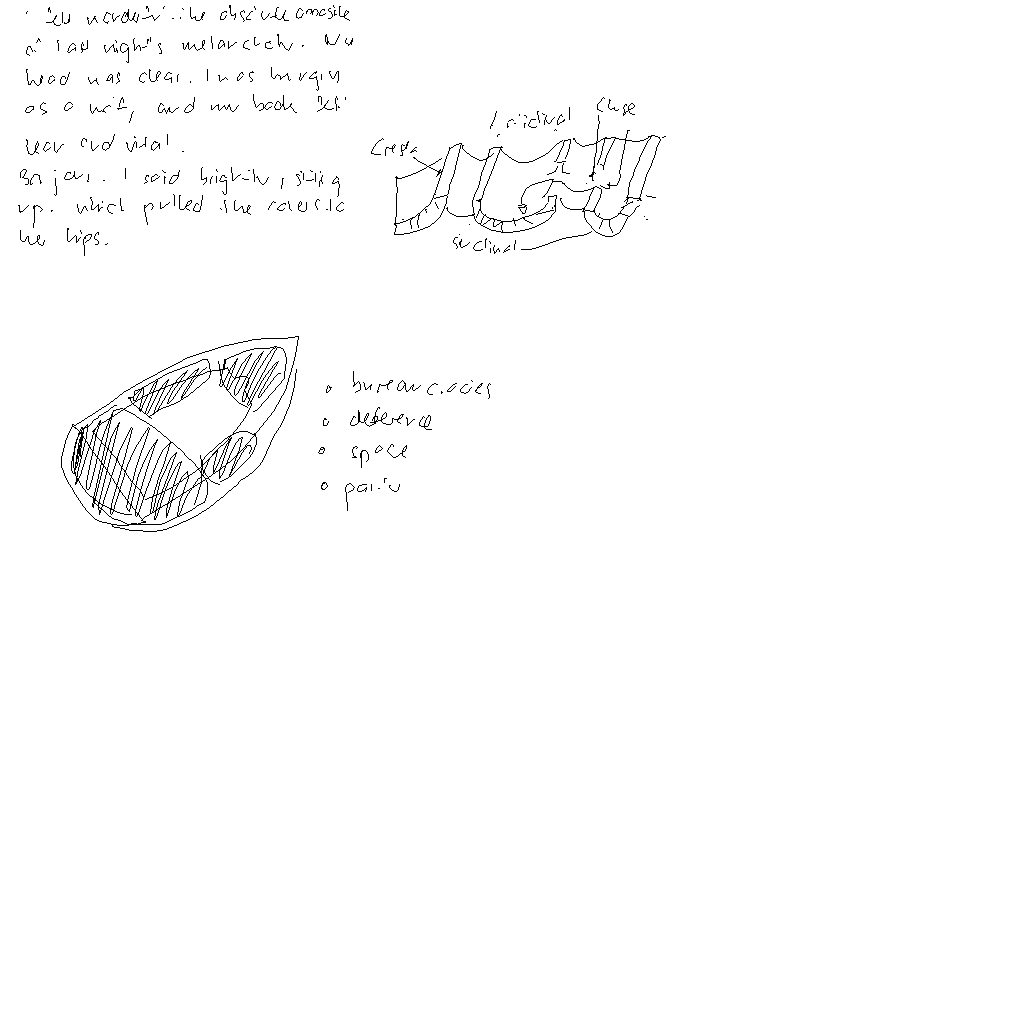 I felt wonderful the absolute opposite
of last night's melancholy. My
head was clear. I was hungry
as a wolf, and my body felt
lean and vital.
Bonjour. I said brightly, sitting
up. which pulled the covers to
her hips.
Cresta
Anticlinal
Cluse
Sinclinal
bureaucracies
deference
space
party